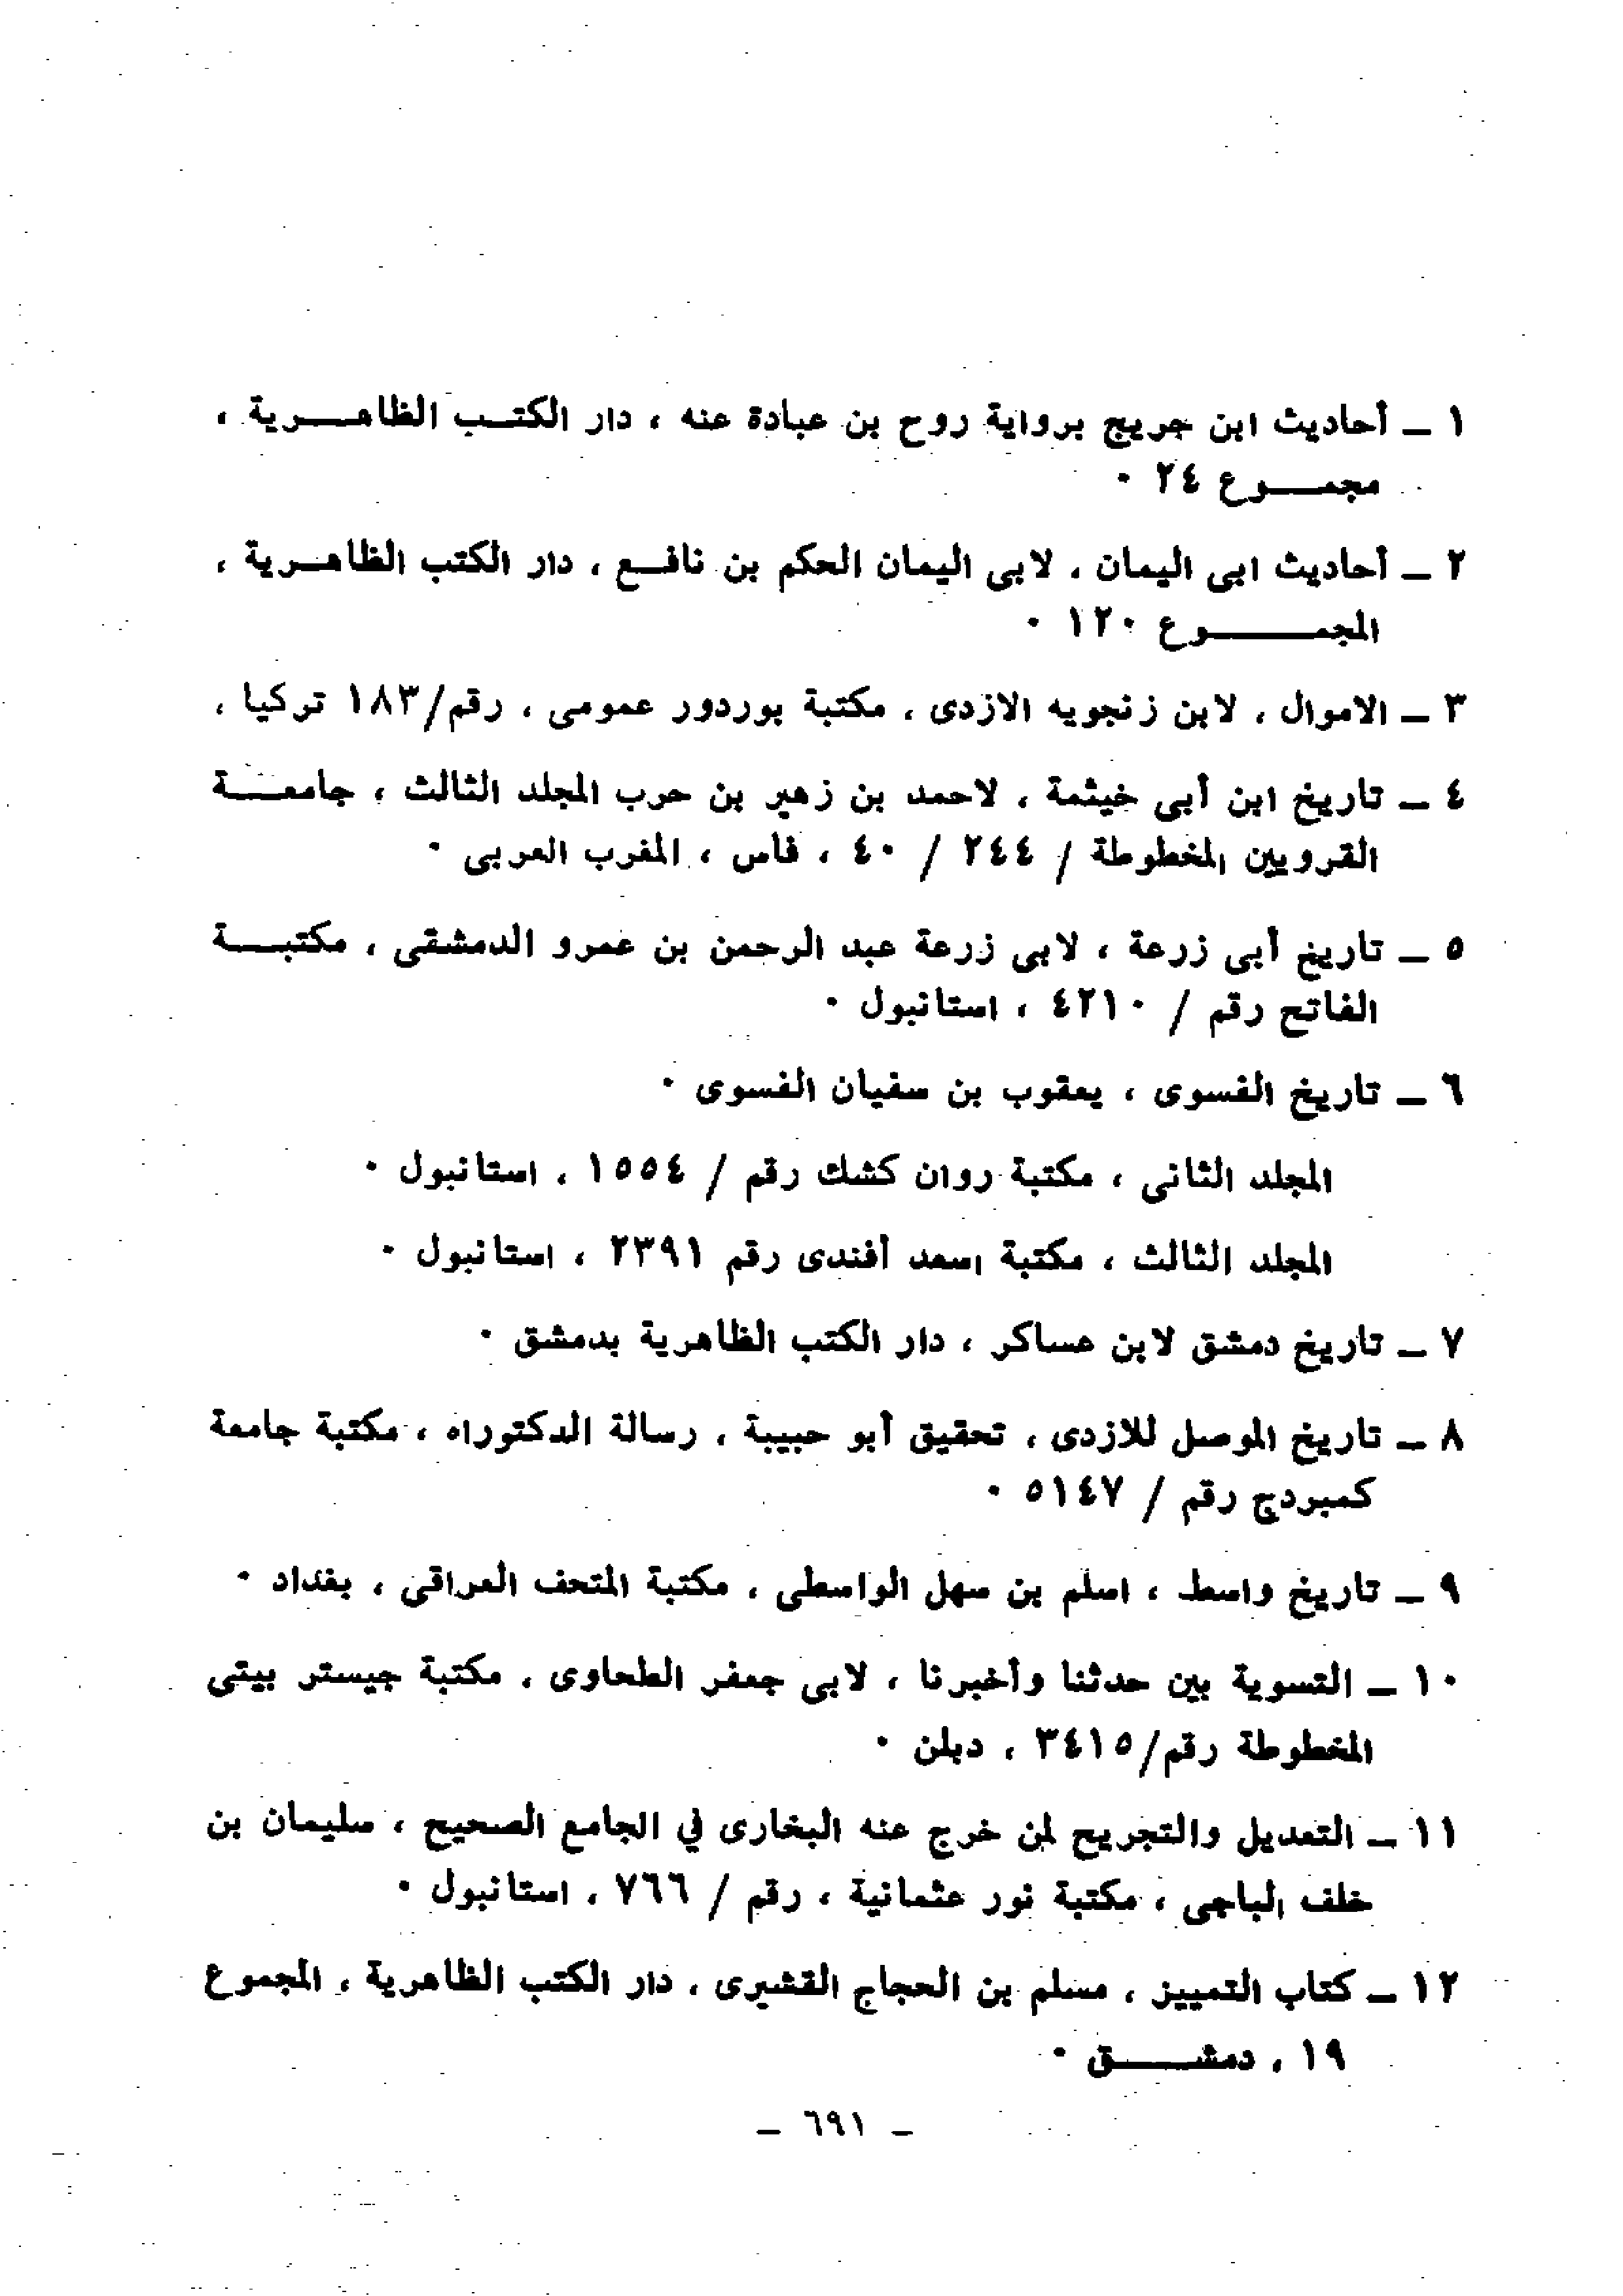 ١ ــ أحاديث ابن جريج برواية روح بن عبادة عنه ، دار الكتـب الظاهـــرية ،
مجمـــوع ٢٤ ٠
٢ ــ أحاديث ابى اليمان ، لابى اليمان الحكم بن نافـع ، دار الكتب الظاهـرية ،
المجمـــــوع ١٢٠ ٠
٣ ــ الاموال ، لابن زنجويه الازدى ، مكتبة بوردور عمومى ، رقم/١٨٣ تركيا ،
٤ ــ تاريخ ابن أبى خيثمة ، لاحمد بن زهير بن حرب المجلد الثالث ، جامعـــة
القرويين المخطوطة / ٢٤٤ / ٤٠ ، فاس ، المغرب العربى ٠
٥ ــ تاريخ أبى زرعة ، لابى زرعة عبد الرحمن بن عمرو الدمشقى ، مكتبـــة
الفاتح رقم / ٤٢١٠ ، استانبول ٠
٦ ــ تاريخ الفسوى ، يعقوب بن سفيان الفسوى ٠
المجلد الثانى ، مكتبة روان كشك رقم / ١٥٥٤ ، استانبول ٠
المجلد الثالث ، مكتبة اسعد أفندى رقم ٢٣٩١ ، استانبول ٠
٧ ــ تاريخ دمشق لابن عساكر ، دار الكتب الظاهرية بدمشق ٠
٨ ــ تاريخ الموصل للازدى ، تحقيق أبو حبيبة ، رسالة الدكتوراه ، مكتبة جامعة
كمبردج رقم / ٥١٤٧ ٠
٩ ــ تاريخ واسط ، اسلم بن سهل الواسطى ، مكتبة المتحف العراقى ، بغداد ٠
١٠ ــ التسوية بين حدثنا وأخبرنا ، لابى جعفر الطحاوى ، مكتبة جيستر بيتى
المخطوطة رقم/٣٤١٥ ، دبلن ٠
١١ ــ التعديل والتجريح لمن خرج عنه البخارى في الجامع الصحيح ، سليمان بن
خلف الباجى ، مكتبة نور عثمانية ، رقم / ٧٦٦ ، استانبول ٠
١٢ ــ كتاب التمييز ، مسلم بن الحجاج القشيرى ، دار الكتب الظاهرية ، المجموع
١٩ ، دمشـــــق ٠
ــ ٦٩١ ــ